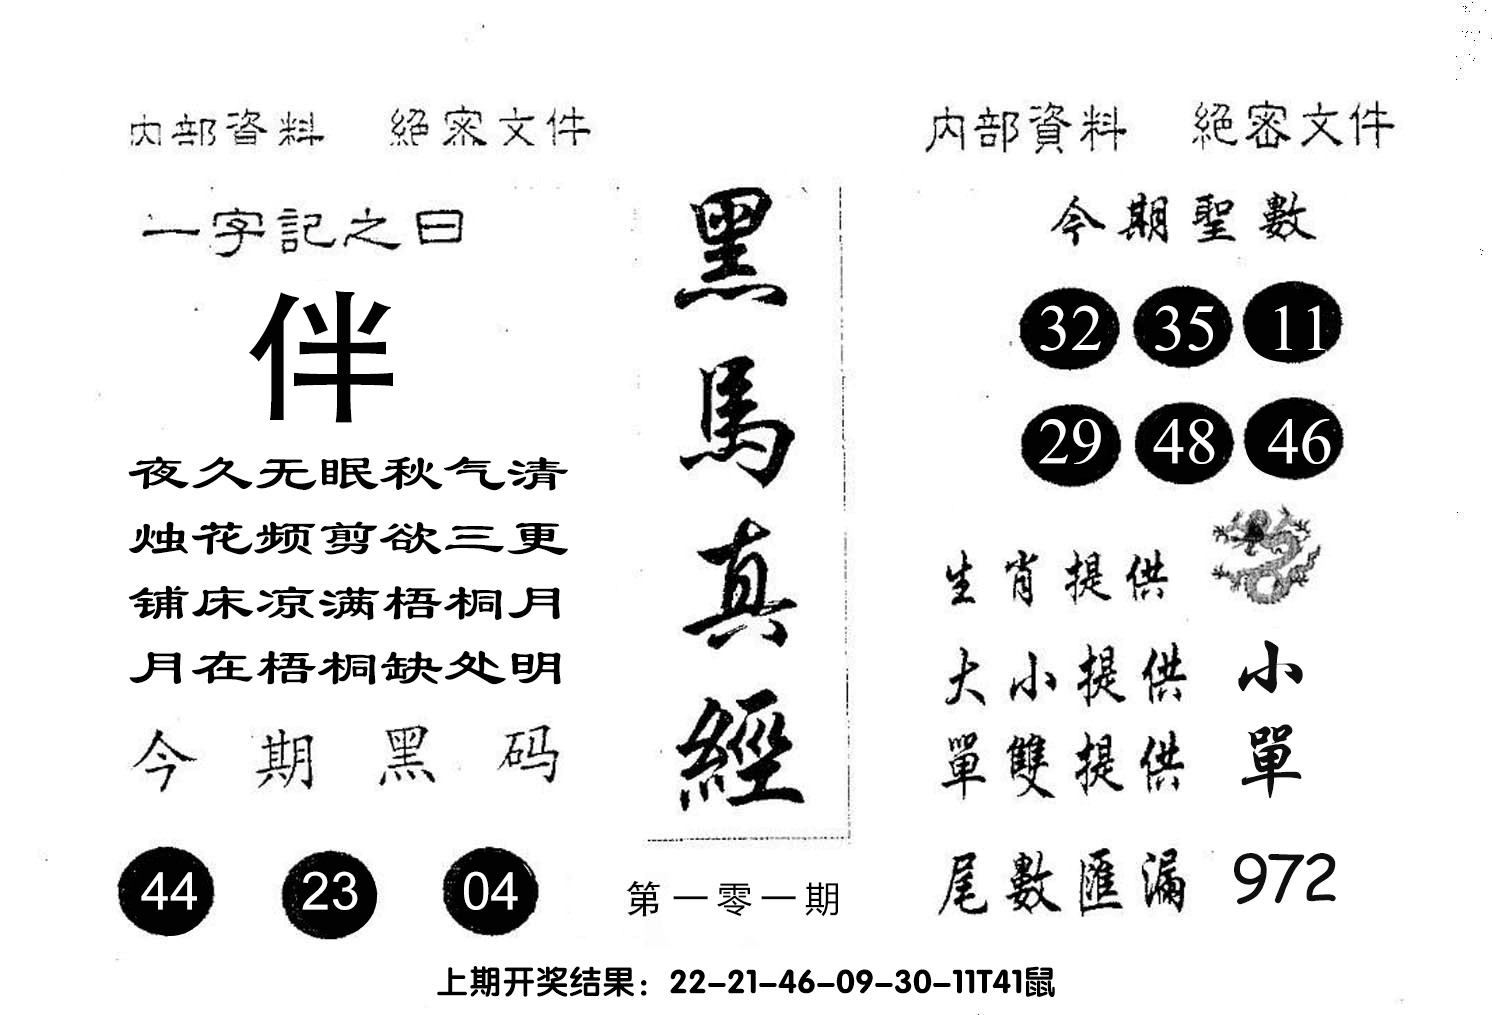 内部資料 絕密文件
一字記之曰
伴
夜久无眠秋气清
烛花频剪欲三更
铺床凉满梧桐月
月在梧桐缺处明
今期黑码
44 23 04
黑馬真經
第一零一期
内部資料 絕密文件
今期聖數
32 35 11
29 48 46
生肖提供
大小提供 小
單雙提供 單
尾數匯漏 972
上期开奖结果：22-21-46-09-30-11T41鼠